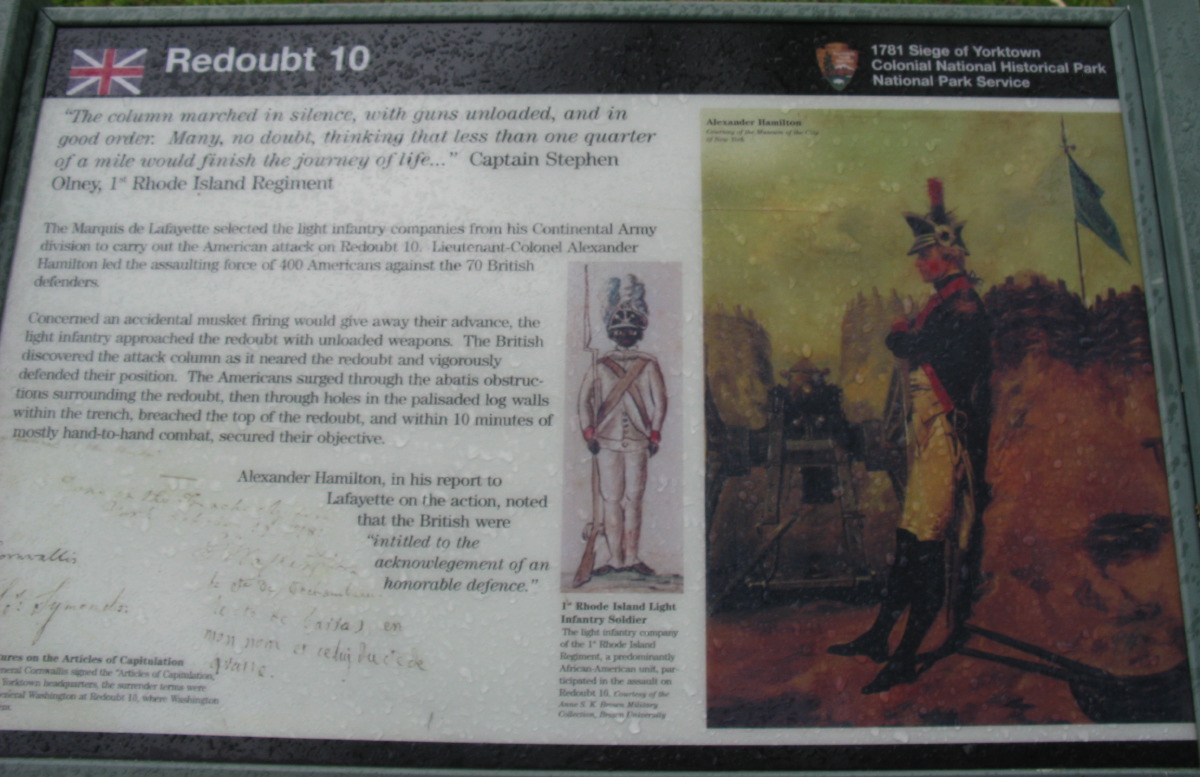 Redoubt 10
1781 Siege of Yorktown
Colonial National Historical Park
National Park Service
"The column marched in silence, with guns unloaded, and in
good order. Many, no doubt, thinking that less than one quarter
of a mile would finish the journey of life..." Captain Stephen
Olney, 1st Rhode Island Regiment
The Marquis de Lafayette selected the light infantry companies from his Continental Army
division to carry out the American attack on Redoubt 10. Lieutenant-Colonel Alexander
Hamilton led the assaulting force of 400 Americans against the 70 British
defenders.
Concerned an accidental musket firing would give away their advance, the
light infantry approached the redoubt with unloaded weapons. The British
discovered the attack column as it neared the redoubt and vigorously
defended their position. The Americans surged through the abatis obstruc-
tions surrounding the redoubt, then through holes in the palisaded log walls
within the trench, breached the top of the redoubt, and within 10 minutes of
mostly hand-to-hand combat, secured their objective.
Alexander Hamilton, in his report to
Lafayette on the action, noted
that the British were
"intitled to the
acknowlegement of an
honorable defence."
ornwallis
Symonds
en
mon nom et celui du
ures on the Articles of Capitulation
neral Cornwallis signed the "Articles of Capitulation,"
Yorktown headquarters, the surrender terms were
eneral Washington at Redoubt 10, where Washington
1st Rhode Island Light
Infantry Soldier
The light infantry company
of the 1st Rhode Island
Regiment, a predominantly
African-American unit, par-
ticipated in the assault on
Redoubt 10. Courtesy of the
Anne S. K. Brown Military
Collection, Brown University
Alexander Hamilton
Courtesy of the Museum of the City
of New York